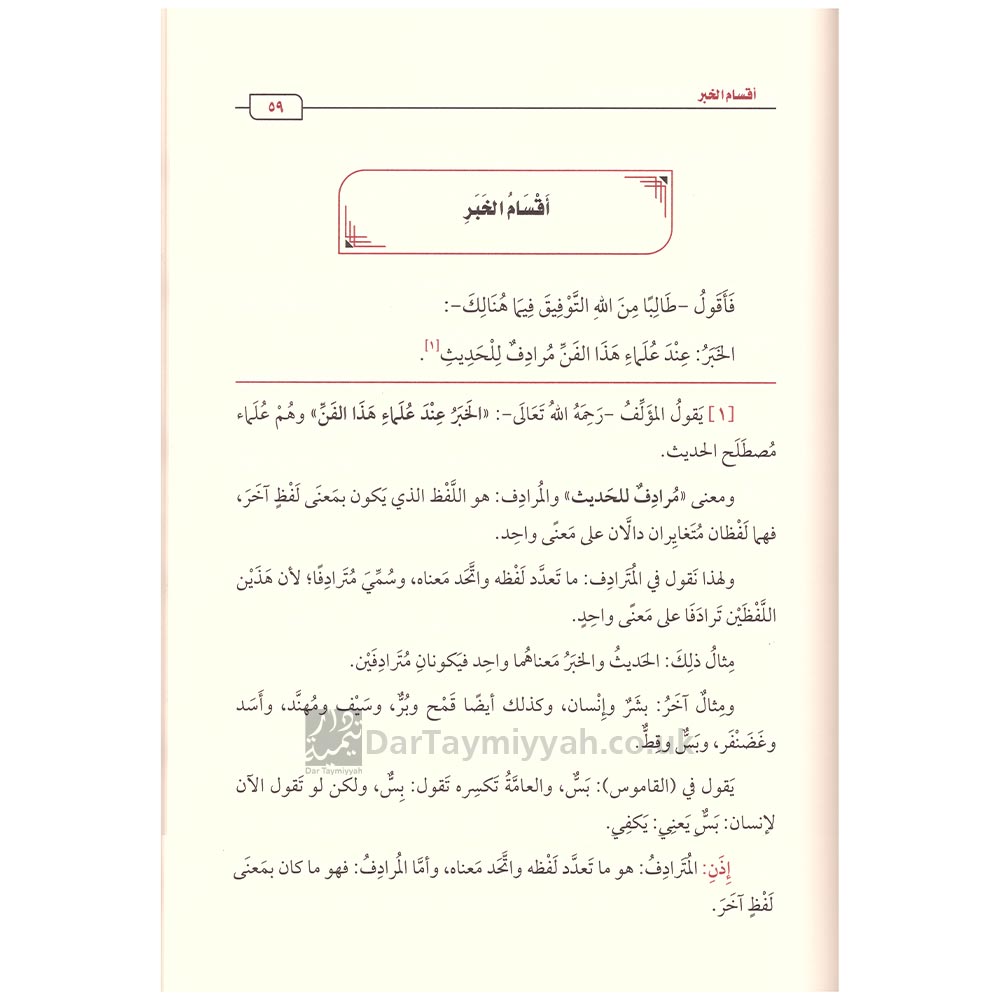 أقسام الخبر
٥٩
أَقْسَامُ الخَبَرِ
فَأَقُولُ -طَالِبًا مِنَ اللهِ التَّوْفِيقَ فِيمَا هُنَالِكَ-:
الخَبَرُ: عِنْدَ عُلَمَاءِ هَذَا الفَنِّ مُرادِفٌ لِلْحَدِيثِ[١].
[١] يَقولُ المؤلِّفُ -رَحِمَهُ اللهُ تَعَالَى-: «الخَبَرُ عِنْدَ عُلَمَاءِ هَذَا الفَنِّ» وهُمْ عُلَماء
مُصطَلَح الحديث.
ومعنى «مُرادِفٌ للحَديث» والمُرادِف: هو اللَّفْظ الذي يَكون بمَعنَى لَفْظٍ آخَرَ،
فهما لَفْظان مُتَغايِران دالَّان على مَعنًى واحِد.
ولهذا نَقول في المُتَرادِف: ما تَعدَّد لَفْظه واتَّحَد مَعناه، وسُمِّيَ مُتَرادِفًا؛ لأن هَذَيْن
اللَّفْظَيْن تَرادَفَا على مَعنًى واحِدٍ.
مِثالُ ذلِكَ: الحَديثُ والخبَرُ مَعناهُما واحِد فيَكونانِ مُتَرادِفَيْن.
ومِثالٌ آخَرُ: بشَرٌ وإِنْسان، وكذلك أيضًا قَمْح وبُرٌّ، وسَيْف ومُهنَّد، وأَسَد
وغَضَنْفَر، وبَسٌّ وقِطٌّ.
DarTaymiyyah.co.uk
Dar Taymiyyah
يَقول في (القاموس): بَسٌّ، والعامَّةُ تَكسِره تَقول: بِسٌّ، ولكن لو تَقول الآن
لإنسان: بَسٌّ يَعنِي: يَكفِي.
إِذَنِ: المُتَرادِفُ: هو ما تَعدَّد لَفْظه واتَّحَد مَعناه، وأمَّا المُرادِفُ: فهو ما كان بمَعنَى
لَفْظٍ آخَرَ.